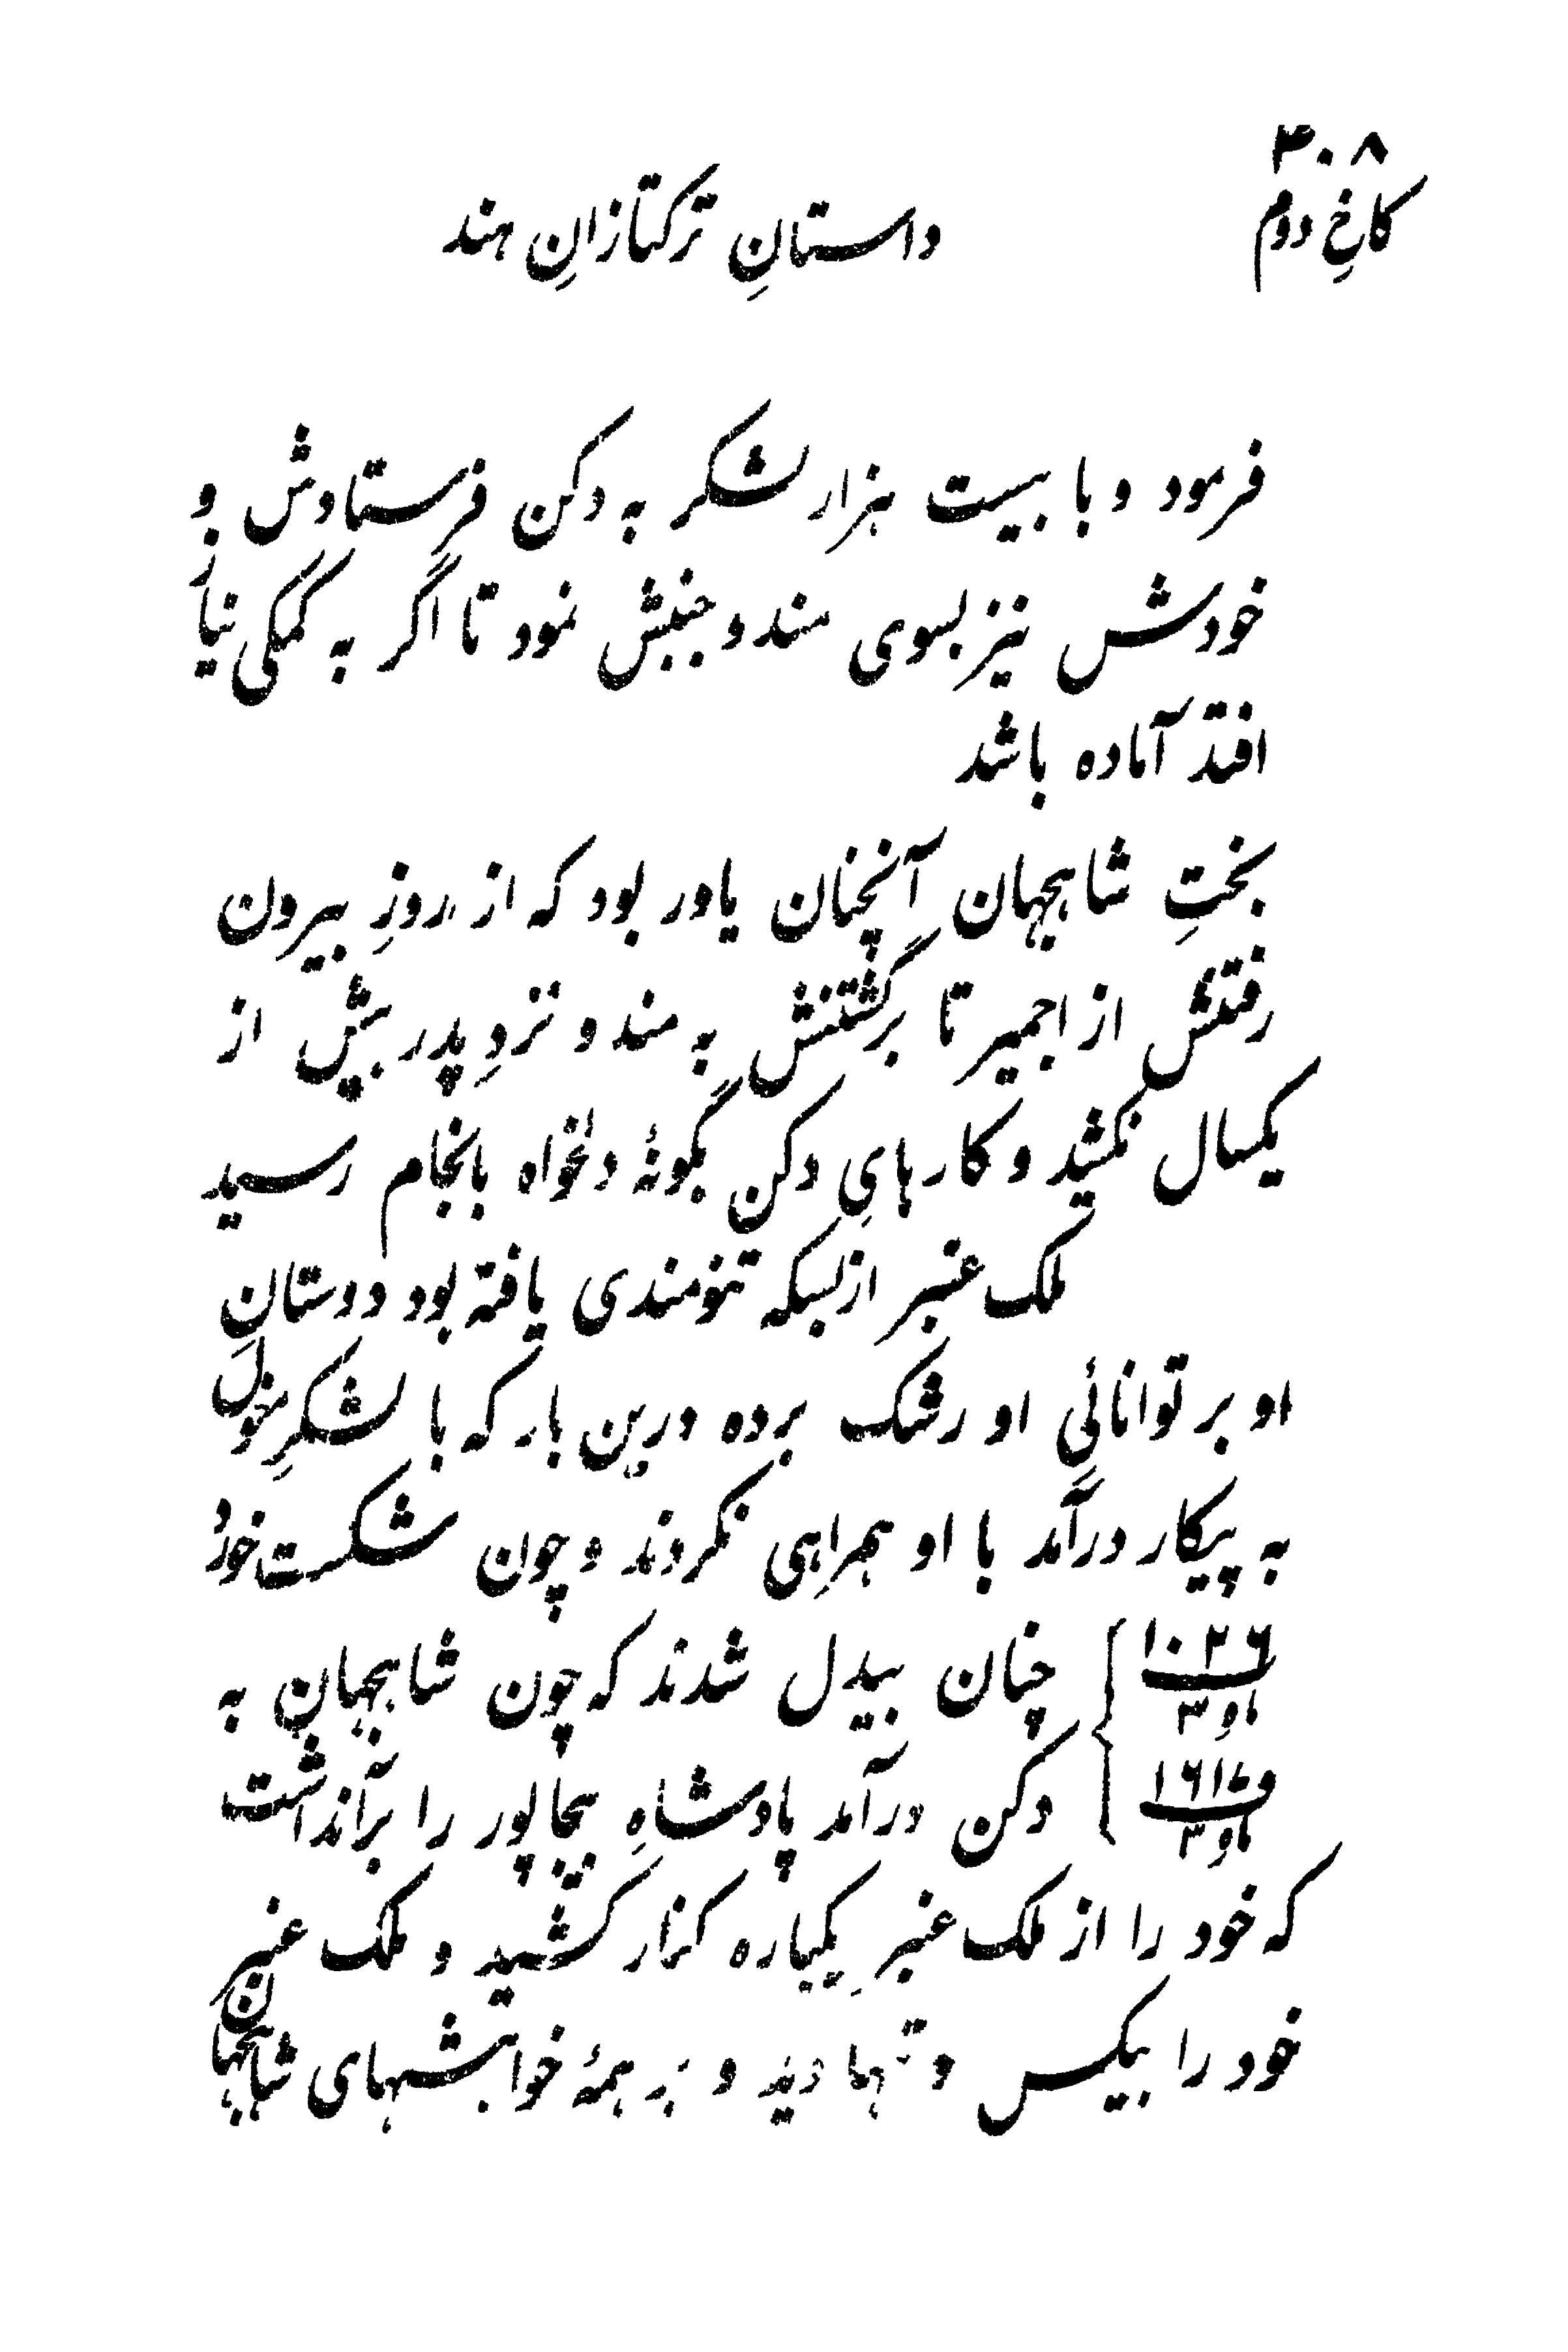 ۳۰۸
کاخِ دوم
داستانِ ترکتازانِ هند
فرمود و با بیست هزار لشکر به دکن فرستادش و
خودش نیز بسوی مندو جنبش نمود تا اگر به کمکی نیاز
افتد آماده باشد
بختِ شاهجهان آنچنان یاور بود که از روزِ بیرون
رفتنش از اجمیر تا برگشتنش به مندو نزدِ پدر بیش از
یکسال نکشید و کارهایِ دکن بگونهٔ دلخواه بانجام رسید
ملک عنبر از بسکه تنومندی یافته بود دوستانِ
او بر توانائیِ او رشک برده درین بار که با لشکرِ مغول
به پیکار درآمد با او همراهی نکردند و چون شکست خورد
۱۰۲۶ چنان بیدل شدند که چون شاهجهان به
ماه ۳
۱۶۱۷ دکن درآمد پادشاهِ بیجاپور را برآنداشت
ماه ۳
که خود را از ملک عنبرِ یکباره کنار کشید و ملک عنبر
خود را بیکس و تنها دید و بر همهٔ خواهشهای شاهجهان